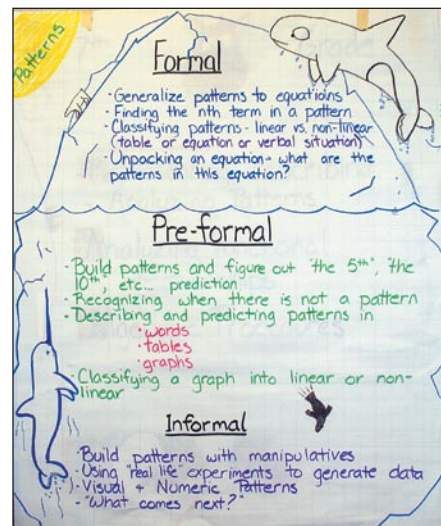 Patterns
Formal
· Generalize patterns to equations
· Finding the nth term in a pattern
· Classifying patterns - linear vs. non-linear
(table or equation or verbal situation)
· Unpacking an equation - what are the
patterns in this equation?
Pre-formal
· Build patterns and figure out "the 5th", "the
10th, etc... prediction
· Recognizing when there is not a pattern
· Describing and predicting patterns in
· words
· tables
· graphs
· Classifying a graph into linear or non-
linear
Informal
· Build patterns with manipulatives
· Using "real life" experiments to generate data
· Visual & Numeric Patterns
· "What comes next?"